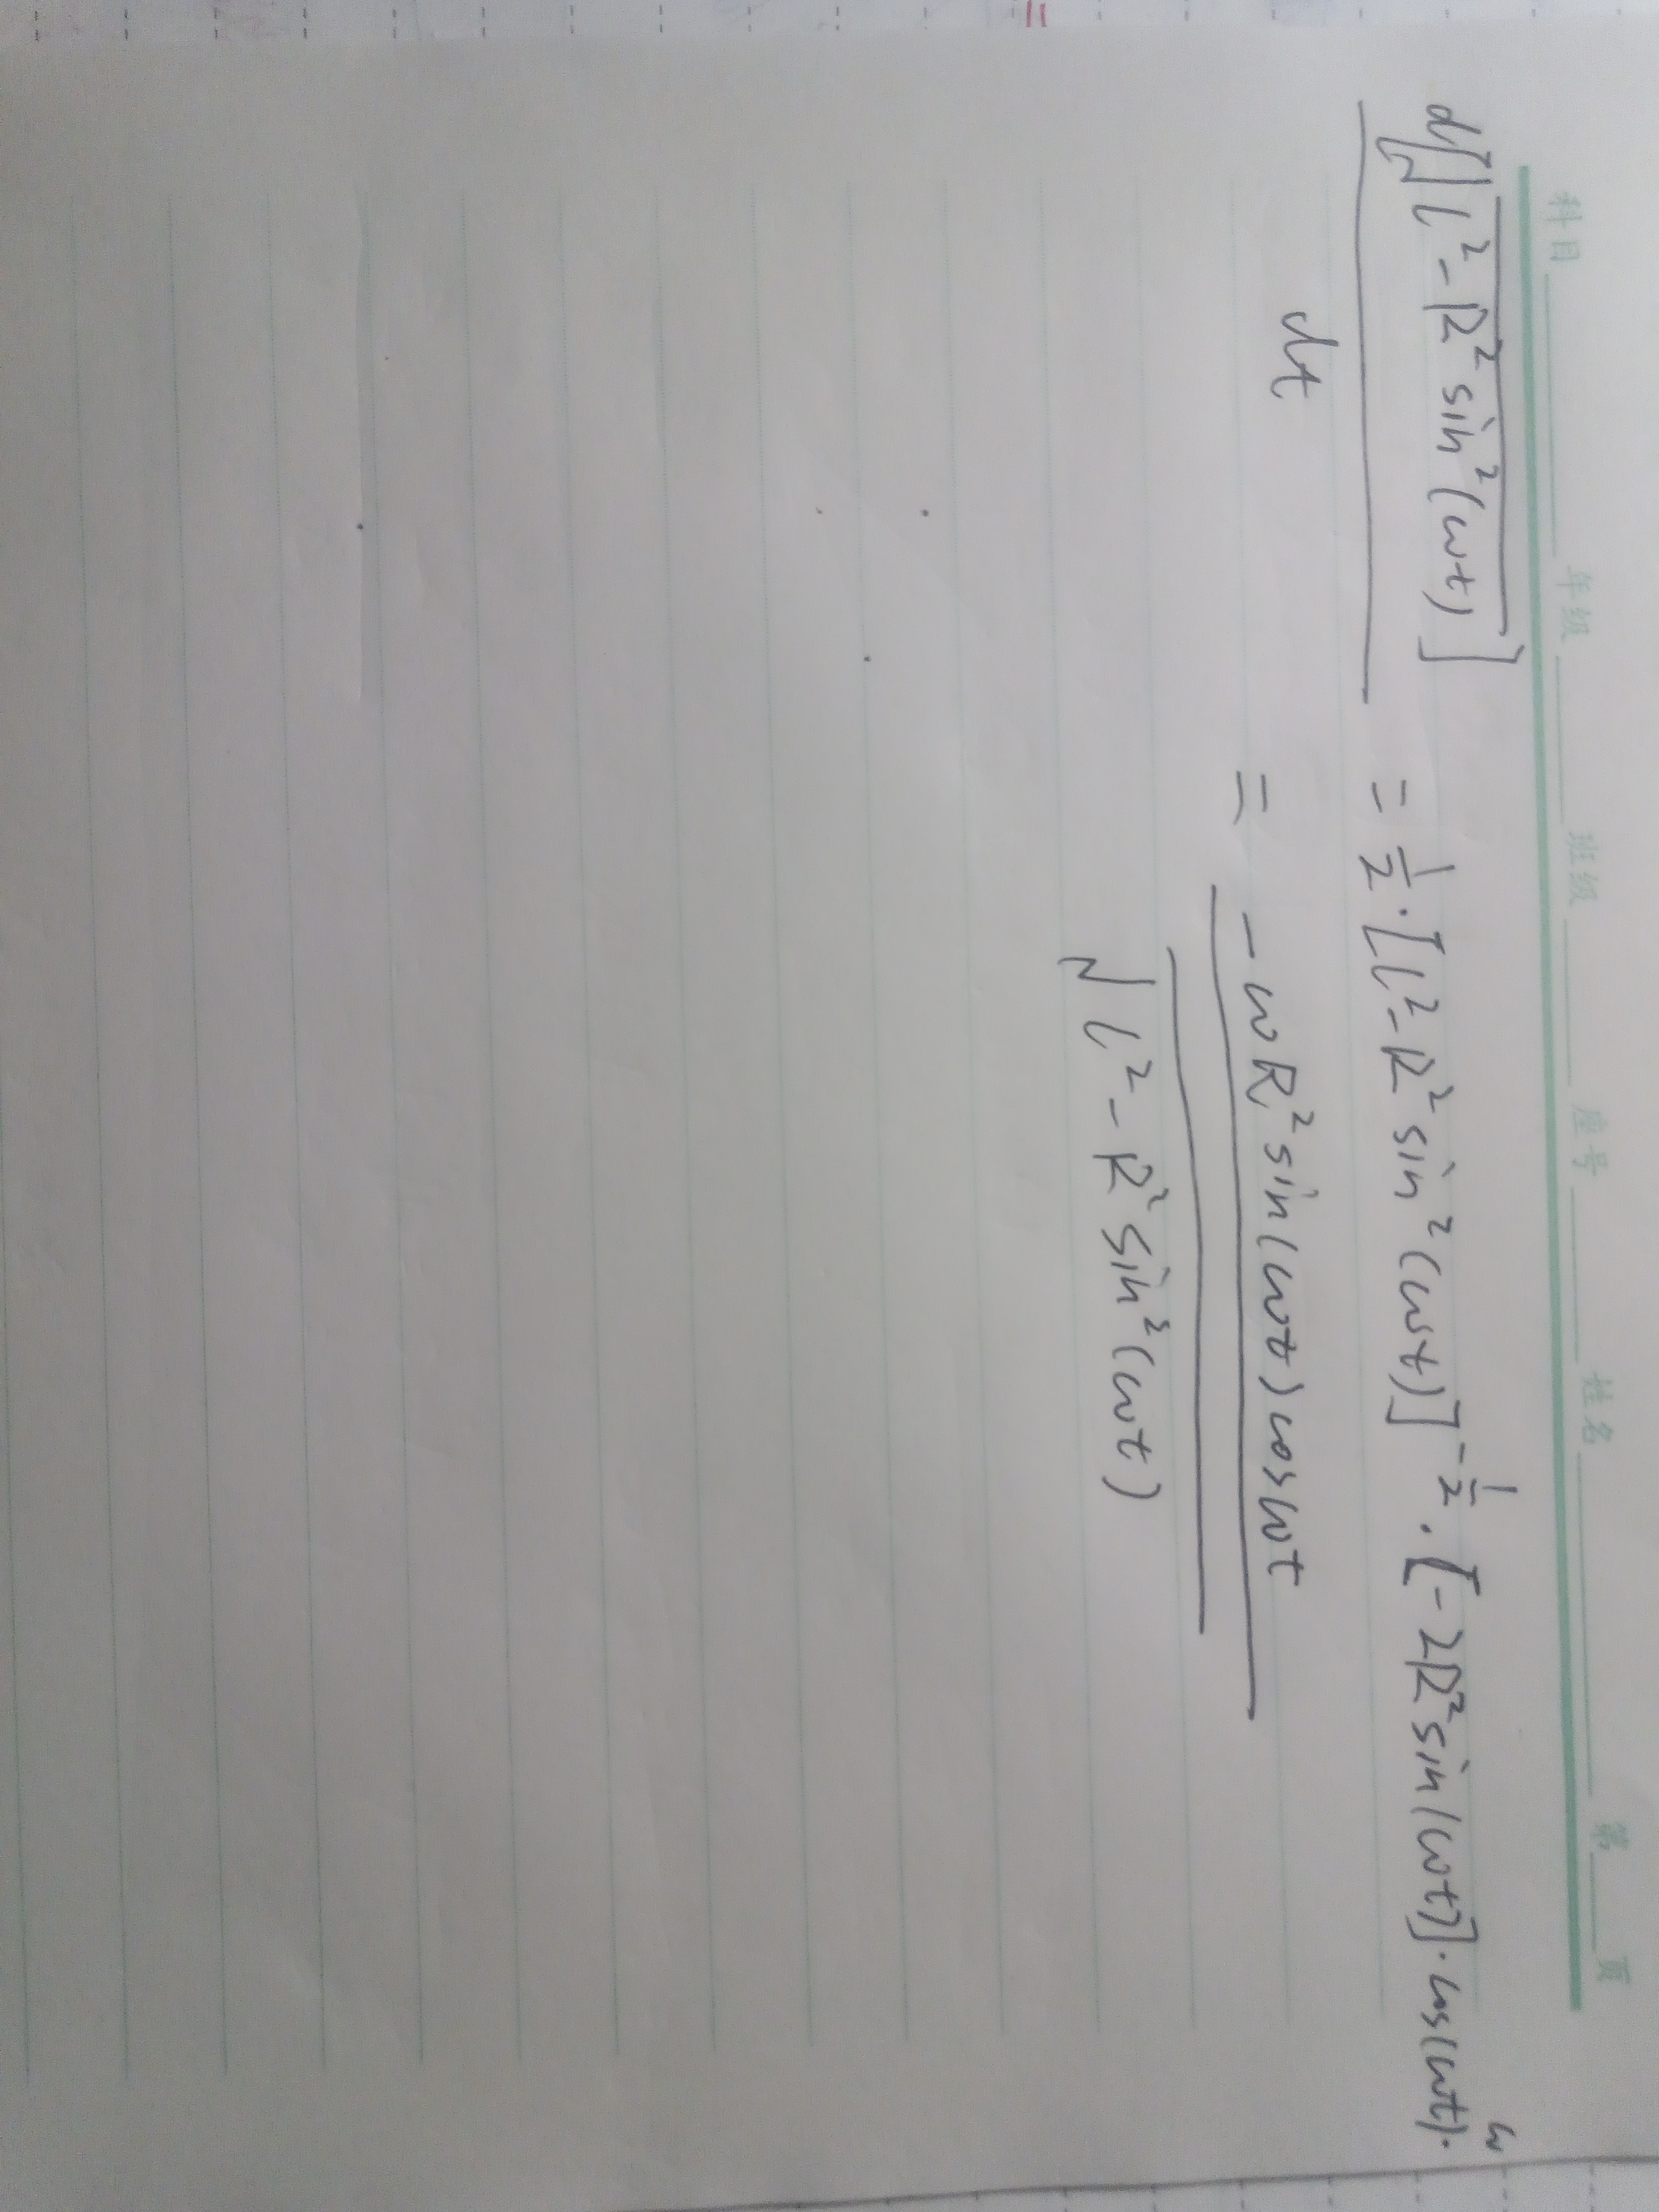 科目 年级 班级 座号 姓名 第 页
d[√(l² - R² sin²(ωt))]/dt = 1/2 · [l² - R² sin²(ωt)]^(-1/2) · [-2R² sin(ωt)] · cos(ωt) · ω
= -ωR² sin(ωt) cos ωt / √(l² - R² sin²(ωt))